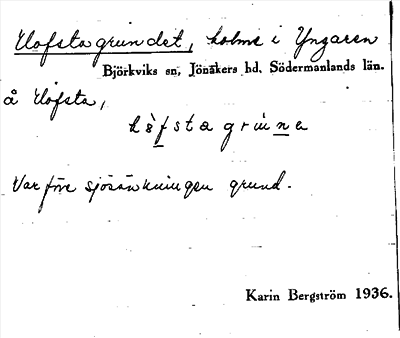 Hofstagrundet, holme i Yngaren
Björkviks sn, Jönåkers hd, Södermanlands län.
å Hofsta,
hòfstagrúna
Var före sjösänkningen grund.
Karin Bergström 1936.